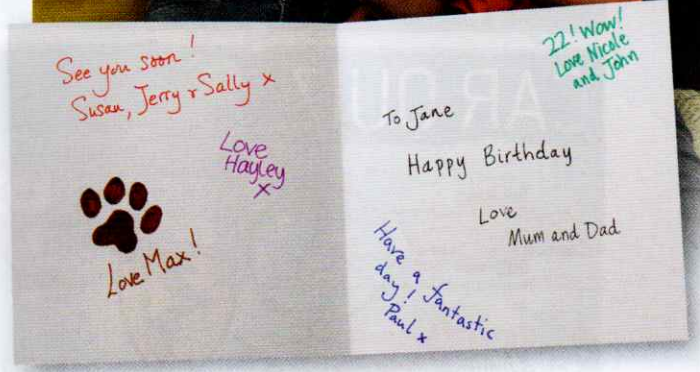 See you soon!
Susan, Jerry & Sally x
Love
Hayley
x
Love Max!
22! Wow!
Love Nicole
and John
To Jane
Happy Birthday
Love
Mum and Dad
Have a fantastic
day!
Paul x